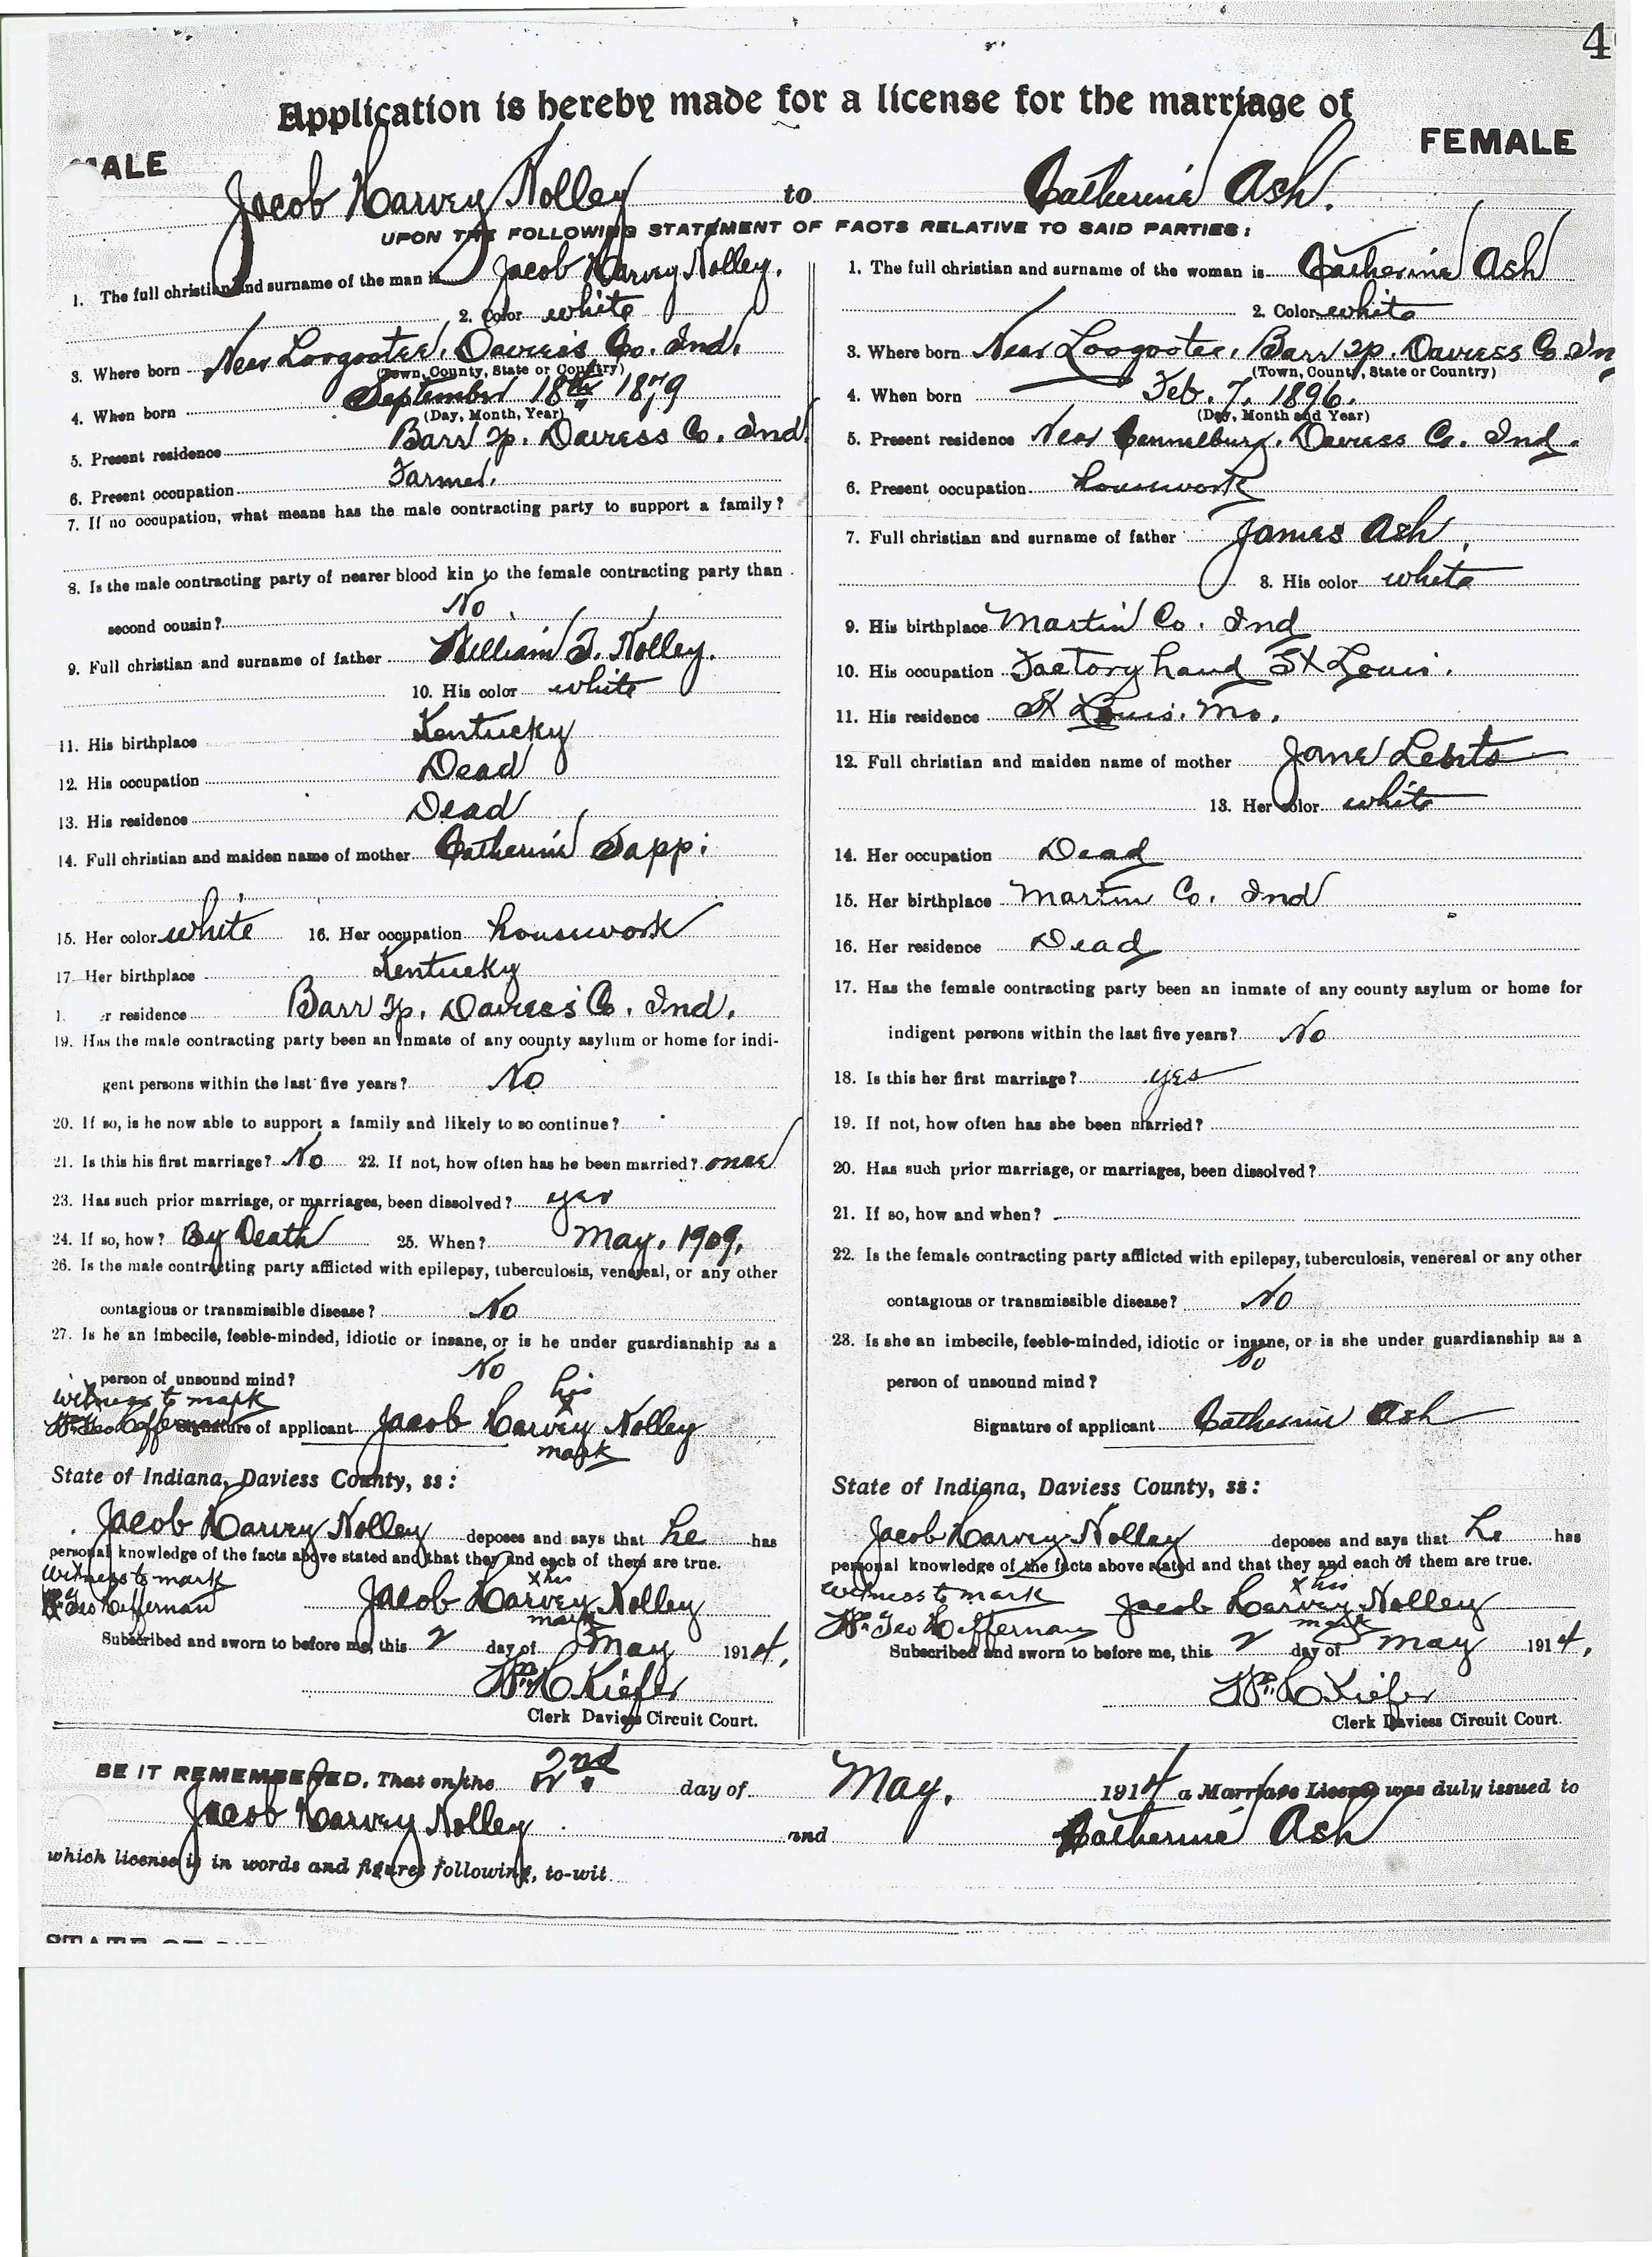 4
Application is hereby made for a license for the marriage of
MALE FEMALE
Jacob Harvey Nolley to Catherine Ash.
UPON THE FOLLOWING STATEMENT OF FACTS RELATIVE TO SAID PARTIES:
1. The full christian and surname of the man is Jacob Harvey Nolley.
2. Color white
3. Where born Near Loogootee. Daviess Co. Ind.
(Town, County, State or Country)
4. When born September 18th 1879
(Day, Month, Year)
5. Present residence Barr Tp. Daviess Co. Ind
6. Present occupation Farmer.
7. If no occupation, what means has the male contracting party to support a family?
8. Is the male contracting party of nearer blood kin to the female contracting party than
second cousin? No
9. Full christian and surname of father William T. Nolley.
10. His color white
11. His birthplace Kentucky
12. His occupation Dead
13. His residence Dead
14. Full christian and maiden name of mother Catherine Sapp.
15. Her color white 16. Her occupation housework
17. Her birthplace Kentucky
1 r residence Barr Tp. Daviess Co. Ind.
19. Has the male contracting party been an inmate of any county asylum or home for indi-
gent persons within the last five years? No
20. If so, is he now able to support a family and likely to so continue?
21. Is this his first marriage? No 22. If not, how often has he been married? once
23. Has such prior marriage, or marriages, been dissolved? yes
24. If so, how? By Death 25. When? May, 1909.
26. Is the male contracting party afflicted with epilepsy, tuberculosis, venereal, or any other
contagious or transmissible disease? No
27. Is he an imbecile, feeble-minded, idiotic or insane, or is he under guardianship as a
person of unsound mind? No
witness to mark his
Wm Geo Heffernan Signature of applicant Jacob Harvey X Nolley
mark
State of Indiana, Daviess County, ss:
Jacob Harvey Nolley deposes and says that he has
personal knowledge of the facts above stated and that they and each of them are true.
Witness to mark X his
Wm Geo Heffernan Jacob Harvey Nolley
mark
Subscribed and sworn to before me, this 2 day of May 1914.
Wm H Kiefer
Clerk Daviess Circuit Court.
1. The full christian and surname of the woman is Catherine Ash
2. Color white
3. Where born Near Loogootee. Barr Tp. Daviess Co. In
(Town, County, State or Country)
4. When born Feb. 7. 1896.
(Day, Month and Year)
5. Present residence Near Cannelburg. Daviess Co. Ind.
6. Present occupation housework
7. Full christian and surname of father James Ash.
8. His color white
9. His birthplace Martin Co. Ind
10. His occupation Factory hand St Louis.
11. His residence St Louis. Mo.
12. Full christian and maiden name of mother Jane
13. Her color white
14. Her occupation Dead
15. Her birthplace Martin Co. Ind
16. Her residence Dead
17. Has the female contracting party been an inmate of any county asylum or home for
indigent persons within the last five years? No
18. Is this her first marriage? yes
19. If not, how often has she been married?
20. Has such prior marriage, or marriages, been dissolved?
21. If so, how and when?
22. Is the female contracting party afflicted with epilepsy, tuberculosis, venereal or any other
contagious or transmissible disease? No
28. Is she an imbecile, feeble-minded, idiotic or insane, or is she under guardianship as a
person of unsound mind? No
Signature of applicant Catherine Ash
State of Indiana, Daviess County, ss:
Jacob Harvey Nolley deposes and says that he has
personal knowledge of the facts above stated and that they and each of them are true.
Witness to mark X his
Wm Geo Heffernan Jacob Harvey Nolley
mark
Subscribed and sworn to before me, this 2 day of May 1914.
Wm H Kiefer
Clerk Daviess Circuit Court.
BE IT REMEMBERED, That on the 2nd day of May, 1914 a Marriage License was duly issued to
Jacob Harvey Nolley and Catherine Ash
which license is in words and figures following, to-wit